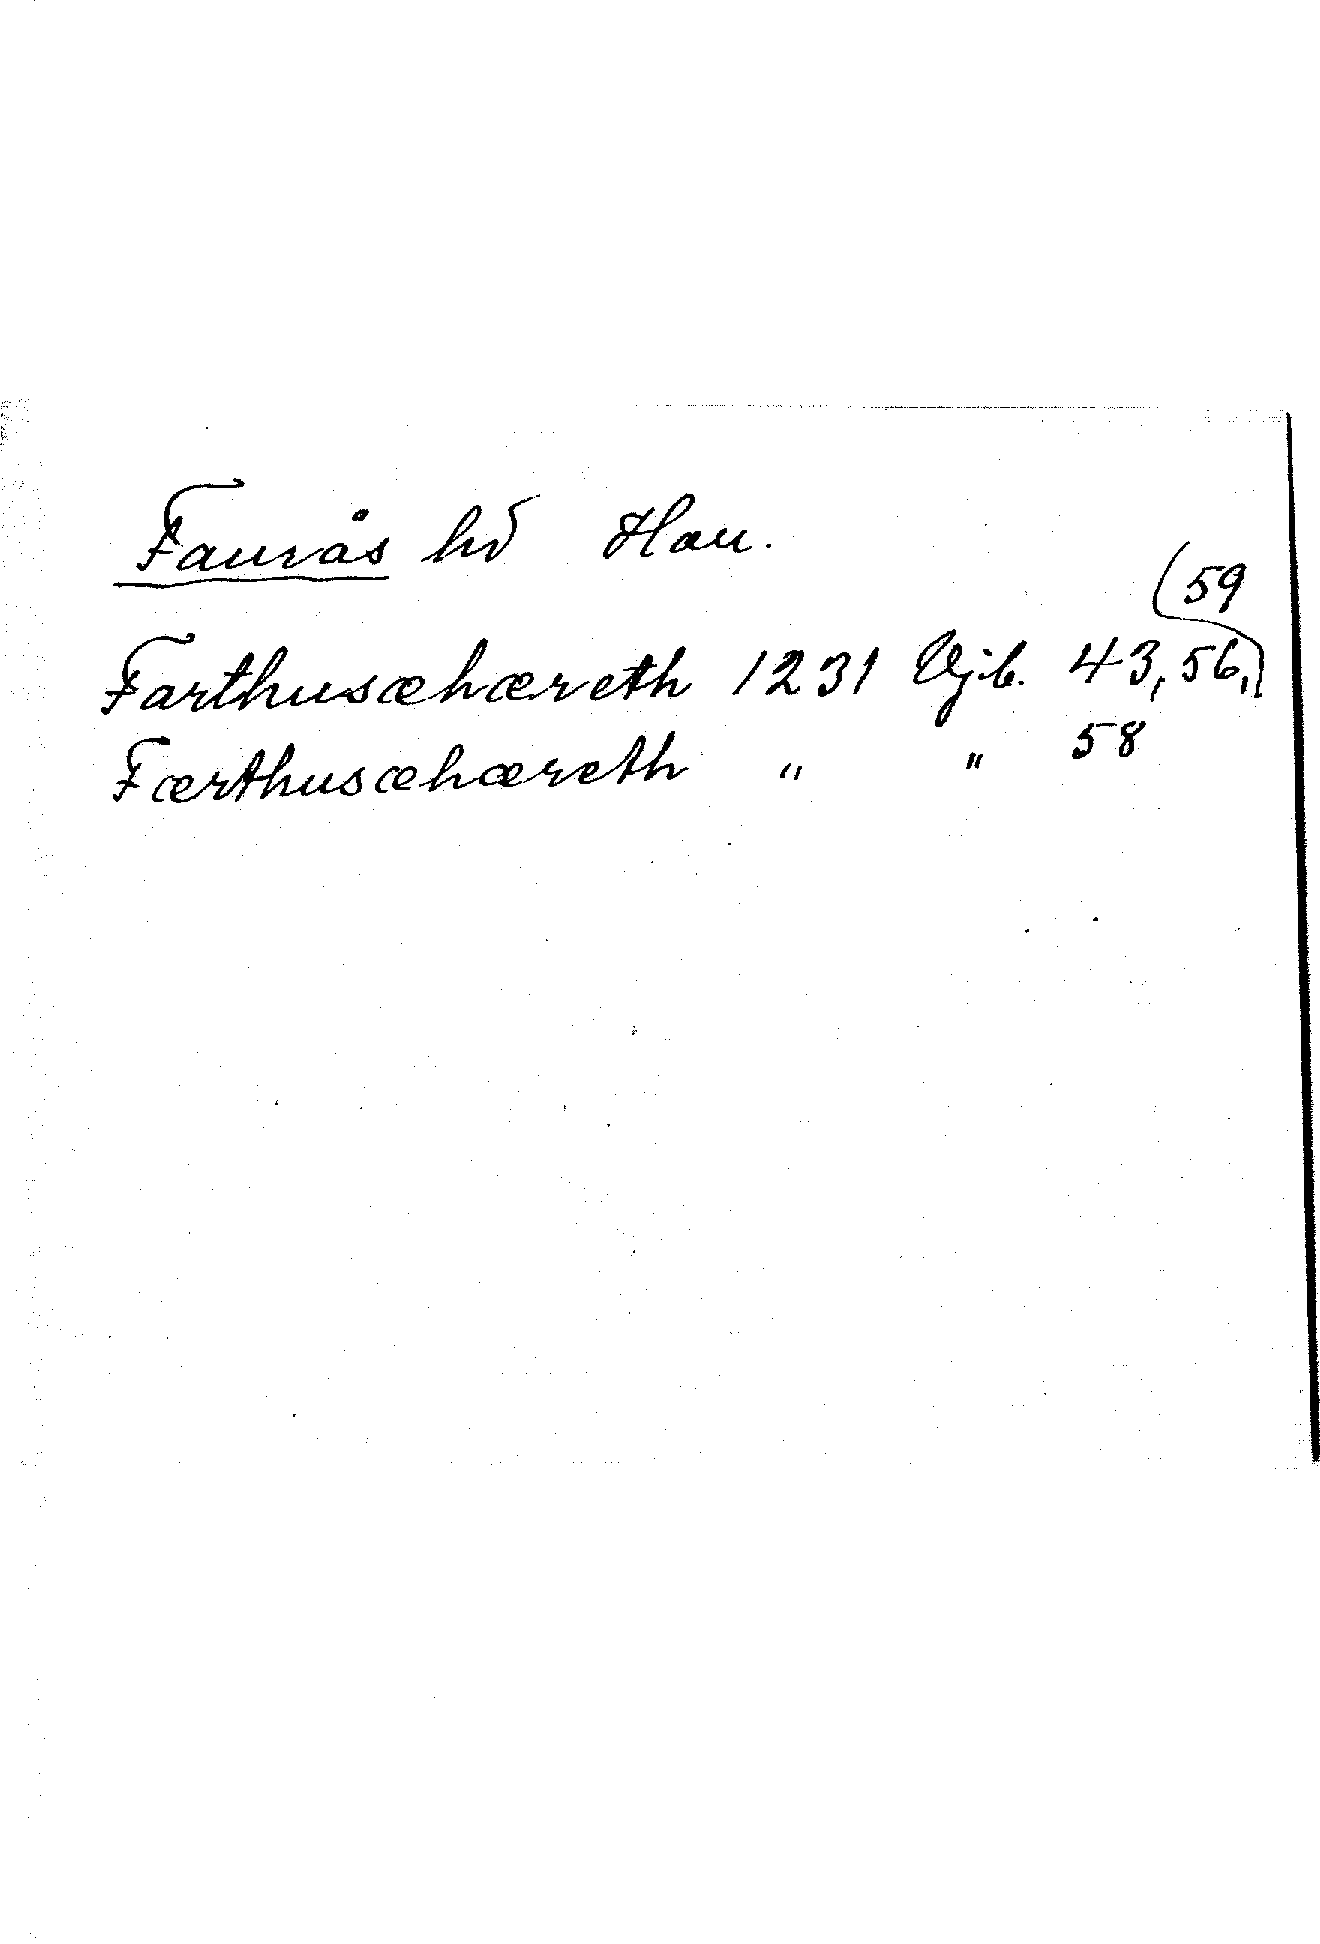 Faurås hd Hall.
Farthusæhæreth 1231 Vjb. 43, 56, (59
Færthusæhæreth " " 58